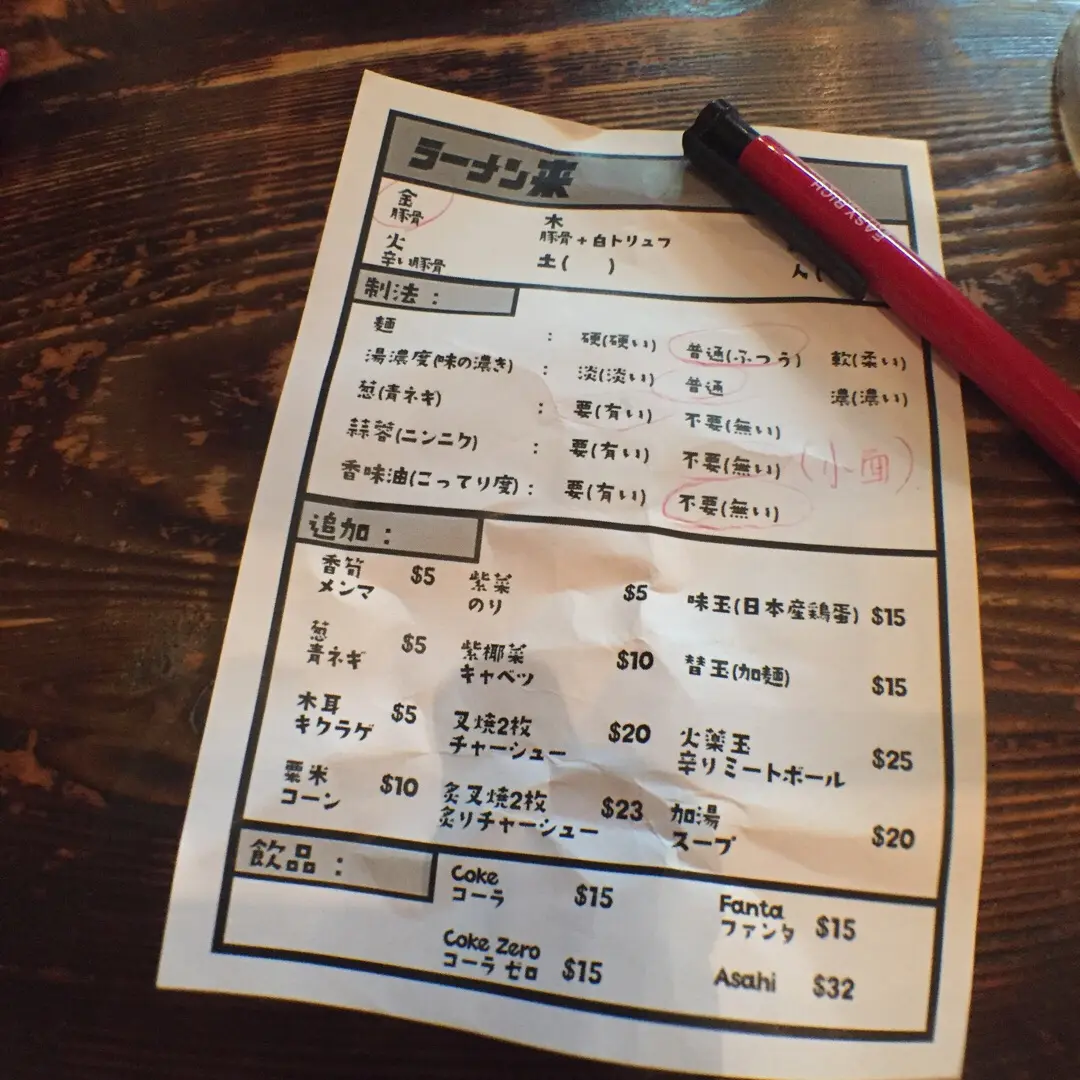 ラーメン来
金
豚骨
木
豚骨+白トリュフ
火
辛い豚骨
土( )
制法:
麺 : 硬(硬い) 普通(ふつう) 軟(柔い)
湯濃度(味の濃き) : 淡(淡い) 普通 濃(濃い)
葱(青ネギ) : 要(有い) 不要(無い)
蒜蓉(ニンニク) : 要(有い) 不要(無い) (小面)
香味油(こってり度) : 要(有い) 不要(無い)
追加:
香筍 $5 紫菜 $5 味玉(日本産鶏蛋) $15
メンマ のり
葱 $5 紫椰菜 $10 替玉(加麺) $15
青ネギ キャベツ
木耳 $5 叉焼2枚 $20 火薬玉 $25
キクラゲ チャーシュー 辛りミートボール
粟米 $10 炙叉焼2枚 $23 加湯 $20
コーン 炙りチャーシュー スープ
飲品:
Coke $15 Fanta $15
コーラ ファンタ
Coke Zero $15 Asahi $32
コーラ ゼロ
EASY RICH